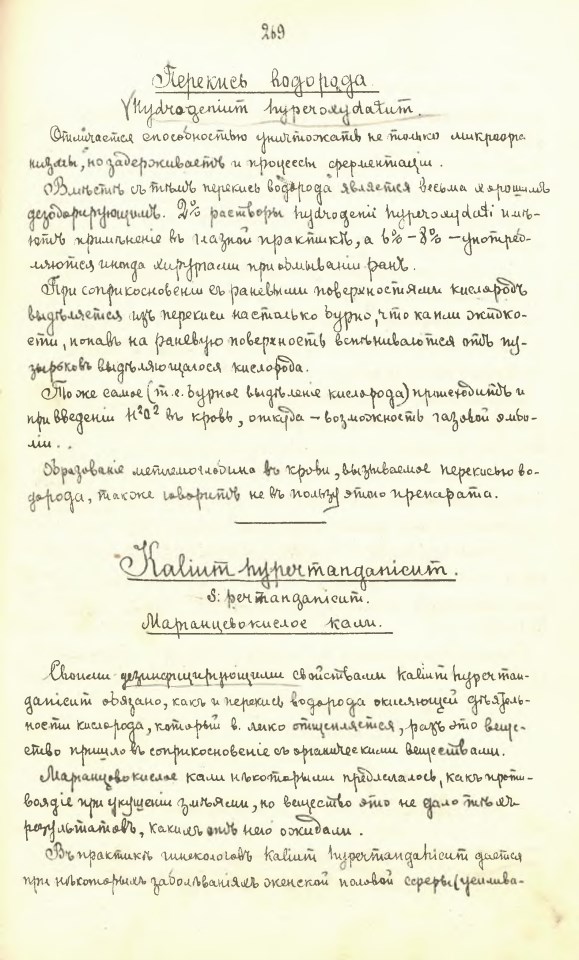 269
Перекись водорода
Hydrogenium hyperoxydatum.
Отличается способностью уничтожать не только микроорга
низмы, но задерживаетъ и процессы ферментаціи.
Вмѣстѣ съ тѣмъ перекись водорода является весьма хорошимъ
дезодорирующимъ. 2% растворы hydrogenii hyperoxydati имѣ-
ютъ примѣненіе въ глазной практикѣ, а 6% - 8% - употреб-
ляются иногда хирургами при обмываніи ранъ.
При соприкосновеніи съ раневыми поверхностями кислородъ
выдѣляется изъ перекиси настолько бурно, что капли жидко-
сти, попавъ на раневую поверхность вспѣниваются отъ пу-
зырьковъ выдѣляющагося кислорода.
То же самое (т.е. бурное выдѣленіе кислорода) происходитъ и
при введеніи H²O² въ кровь, откуда - возможность газовой эмбо-
ліи..
Образованіе метгемоглобина въ крови, вызываемое перекисью во-
дорода, также говоритъ не въ пользу этого препарата.
Kalium hypermanganicum.
S: permanganicum.
Марганцевокислое кали.
Своими дезинфицирующими свойствами Kalium hyperman-
ganicum обязано, какъ и перекись водорода окисляющей дѣятель-
ности кислорода, который в. легко отщепляется, разъ это веще-
ство пришло въ соприкосновеніе съ органическими веществами.
Марганцовокислое кали нѣкоторыми предлагалось, какъ проти-
воядіе при укушеніи змѣями, но вещество это не дало тѣхъ
результатовъ, какихъ отъ него ожидали.
Въ практикѣ гинекологовъ Kalium hypermanganicum дается
при нѣкоторыхъ заболѣваніяхъ женской половой сферы (усилива-